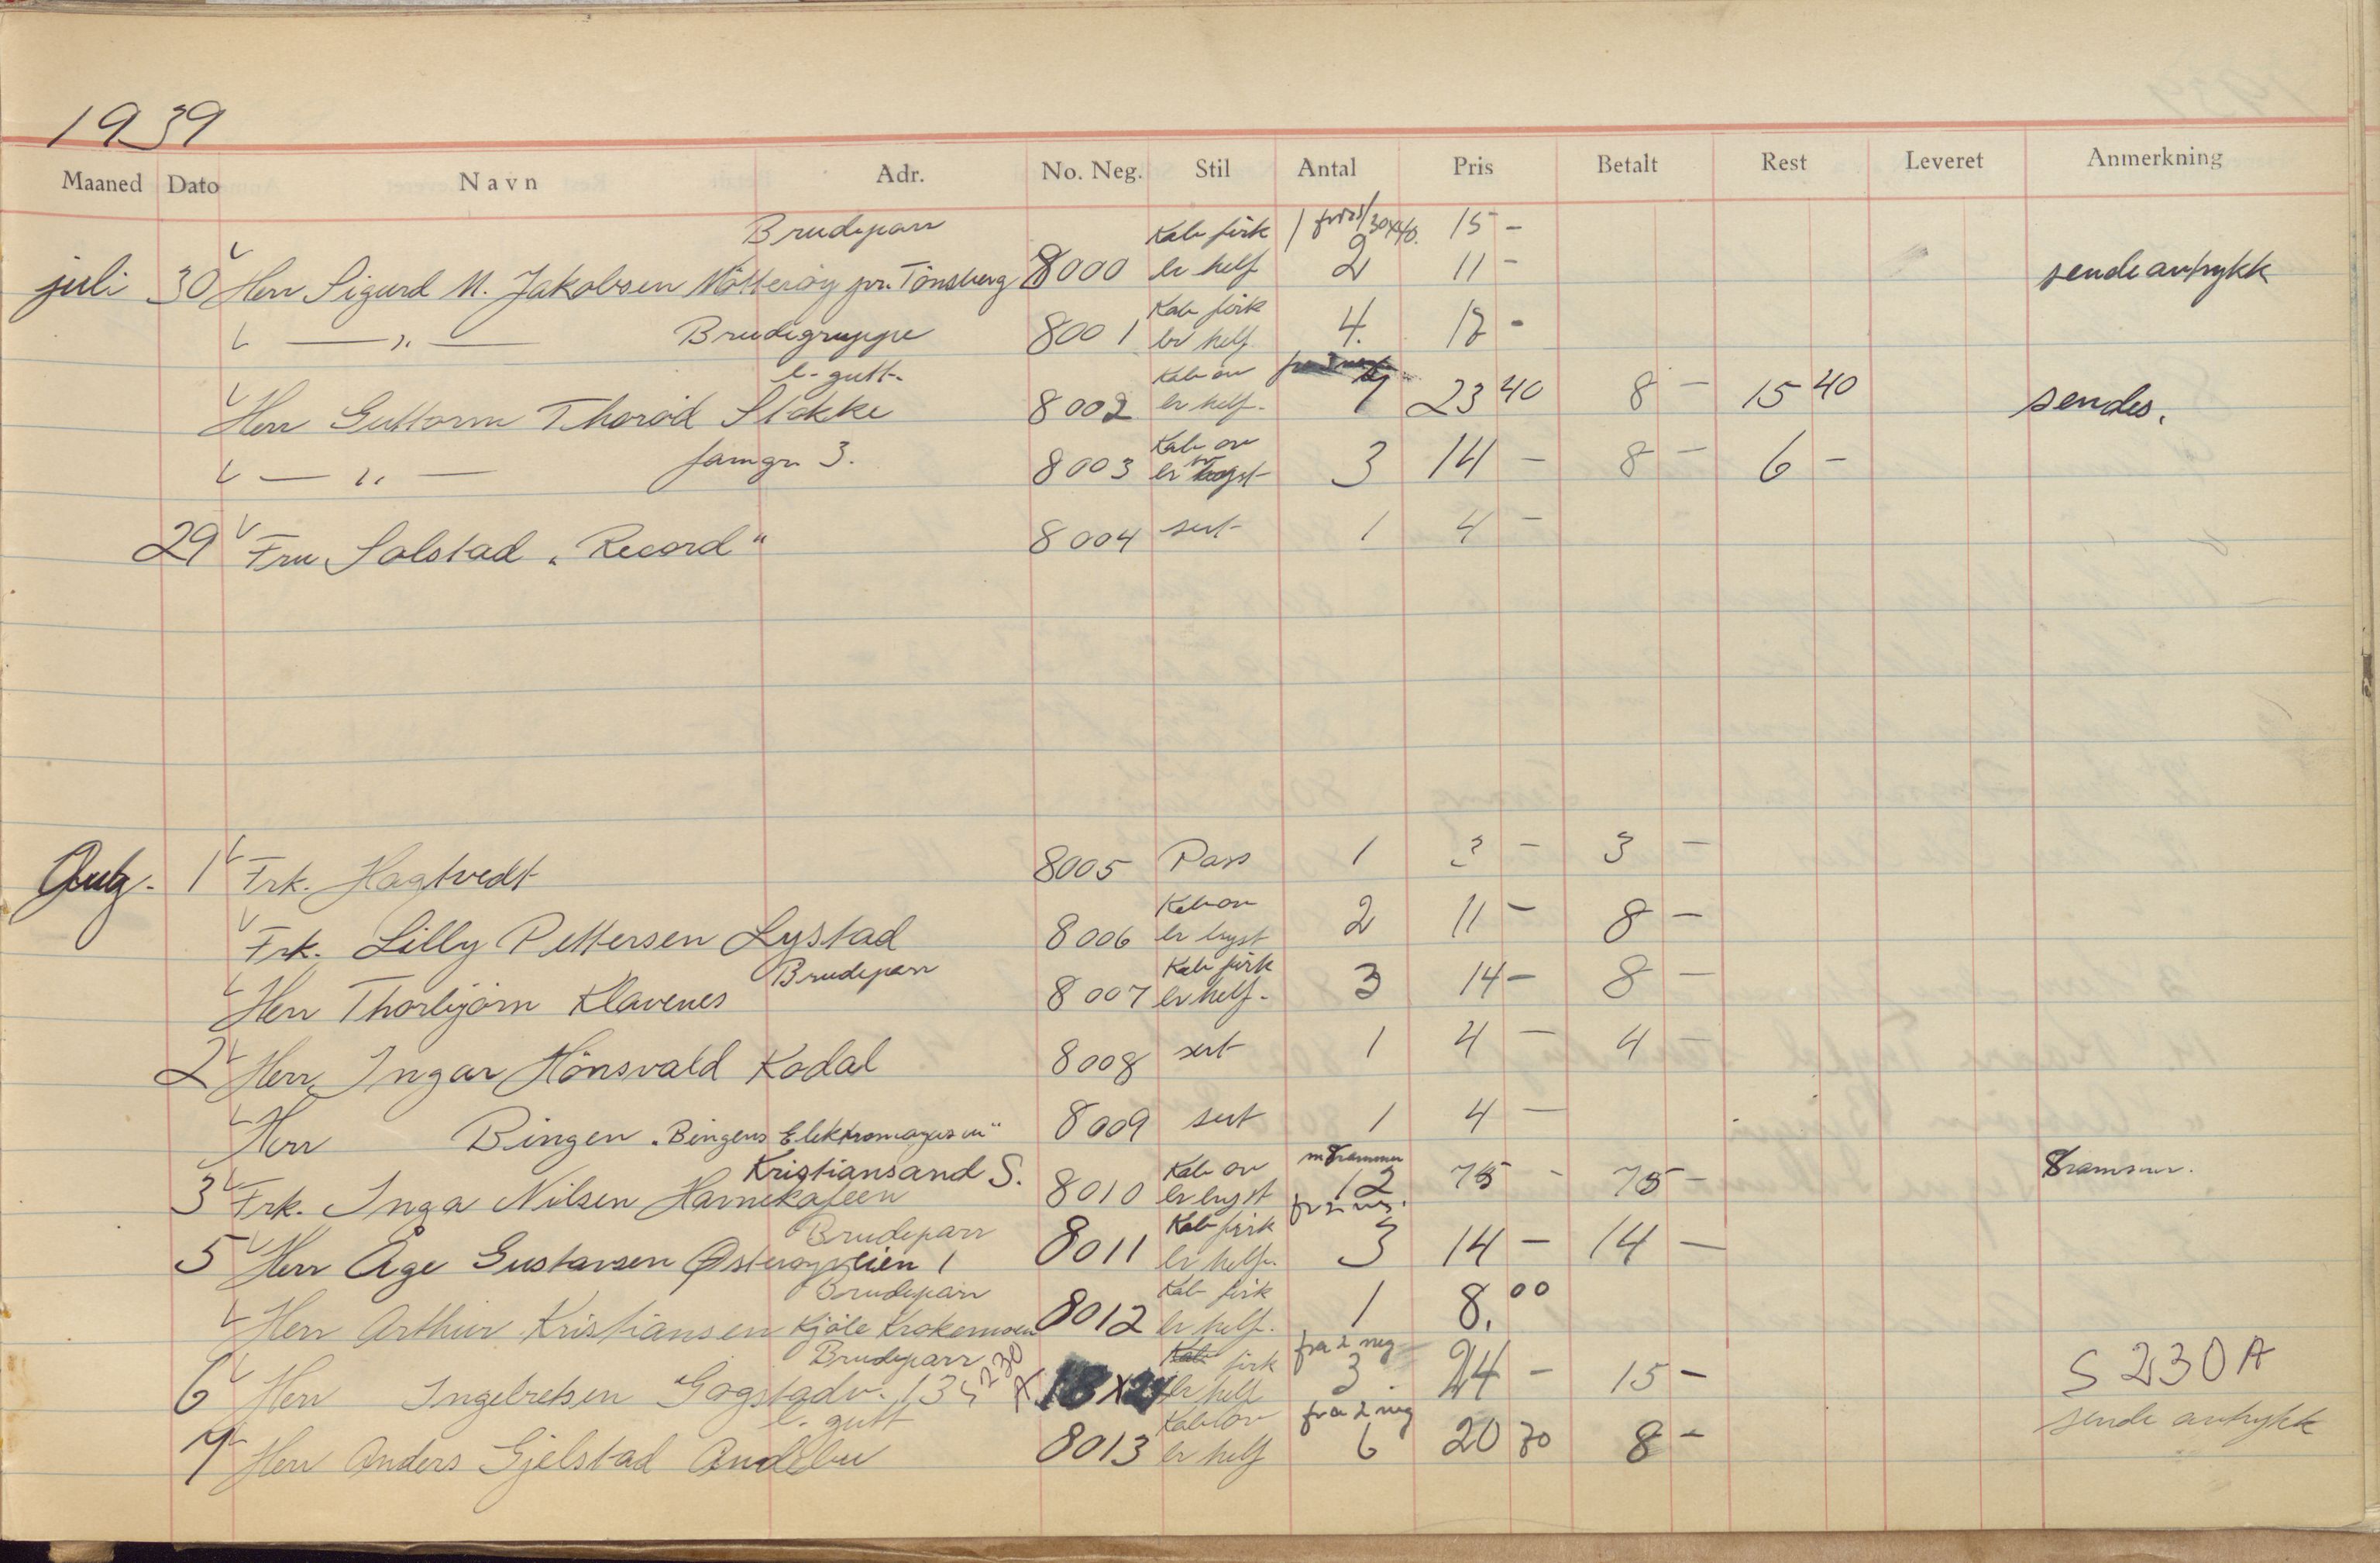 1939
Maaned Dato Navn Adr. No. Neg. Stil Antal Pris Betalt Rest Leveret Anmerkning
Brudepar Kab firk 1 30x40. 15 -
juli 30 Herr Sigurd M. Jakobsen Nötteröy pr. Tönsberg 8000 br helf 2 11 - sende avtrykk
Kab firk
— „ — Brudegruppe 8001 br helf 4. 17 -
l. gutt. Kab ov
Herr Guttorm Thoröd Stokke 8002 br helf. 7 23 40 8 - 15 40 sendes.
Kab ov
— „ — famgr. 3. 8003 br 3 14 - 8 - 6 -
29 Fru Solstad „Record" 8004 sert 1 4 -
Aug. 1 Frk. Hagtvedt 8005 Pass 1 3 - 3 -
Kab ov
Frk. Lilly Pettersen Lystad 8006 br bryst 2 11 - 8 -
Brudeparr Kab firk
Herr Thorbjörn Klavenes 8007 br helf. 3 14 - 8 -
2 Herr Ingar Hönsvald Kodal 8008 sert 1 4 - 4 -
Herr Bingen „Bingens Elektromagasin" 8009 sert 1 4 -
Kristiansand S. Kab ov m rammer
3 Frk. Inga Nilsen Havnekafeen 8010 br bryst 12 75 - 75 -
Brudeparr Kab firk fr 2 neg.
5 Herr Åge Gustavsen Østerøyveien 1 8011 br helf. 3 14 - 14 -
Brudeparr Kab firk
Herr Arthur Kristiansen Kjöle Krokemoen 8012 br helf. 1 8.00
Brudeparr 230 A Kab firk fra 2 neg
6 Herr Ingebretsen Gogstadv. 135 18x24 br helf 3 24 - 15 - S 230 A
l. gutt Kab ov fra 2 neg
7 Herr Anders Gjelstad Andebu 8013 br helf 6 20 70 8 - sende avtrykk